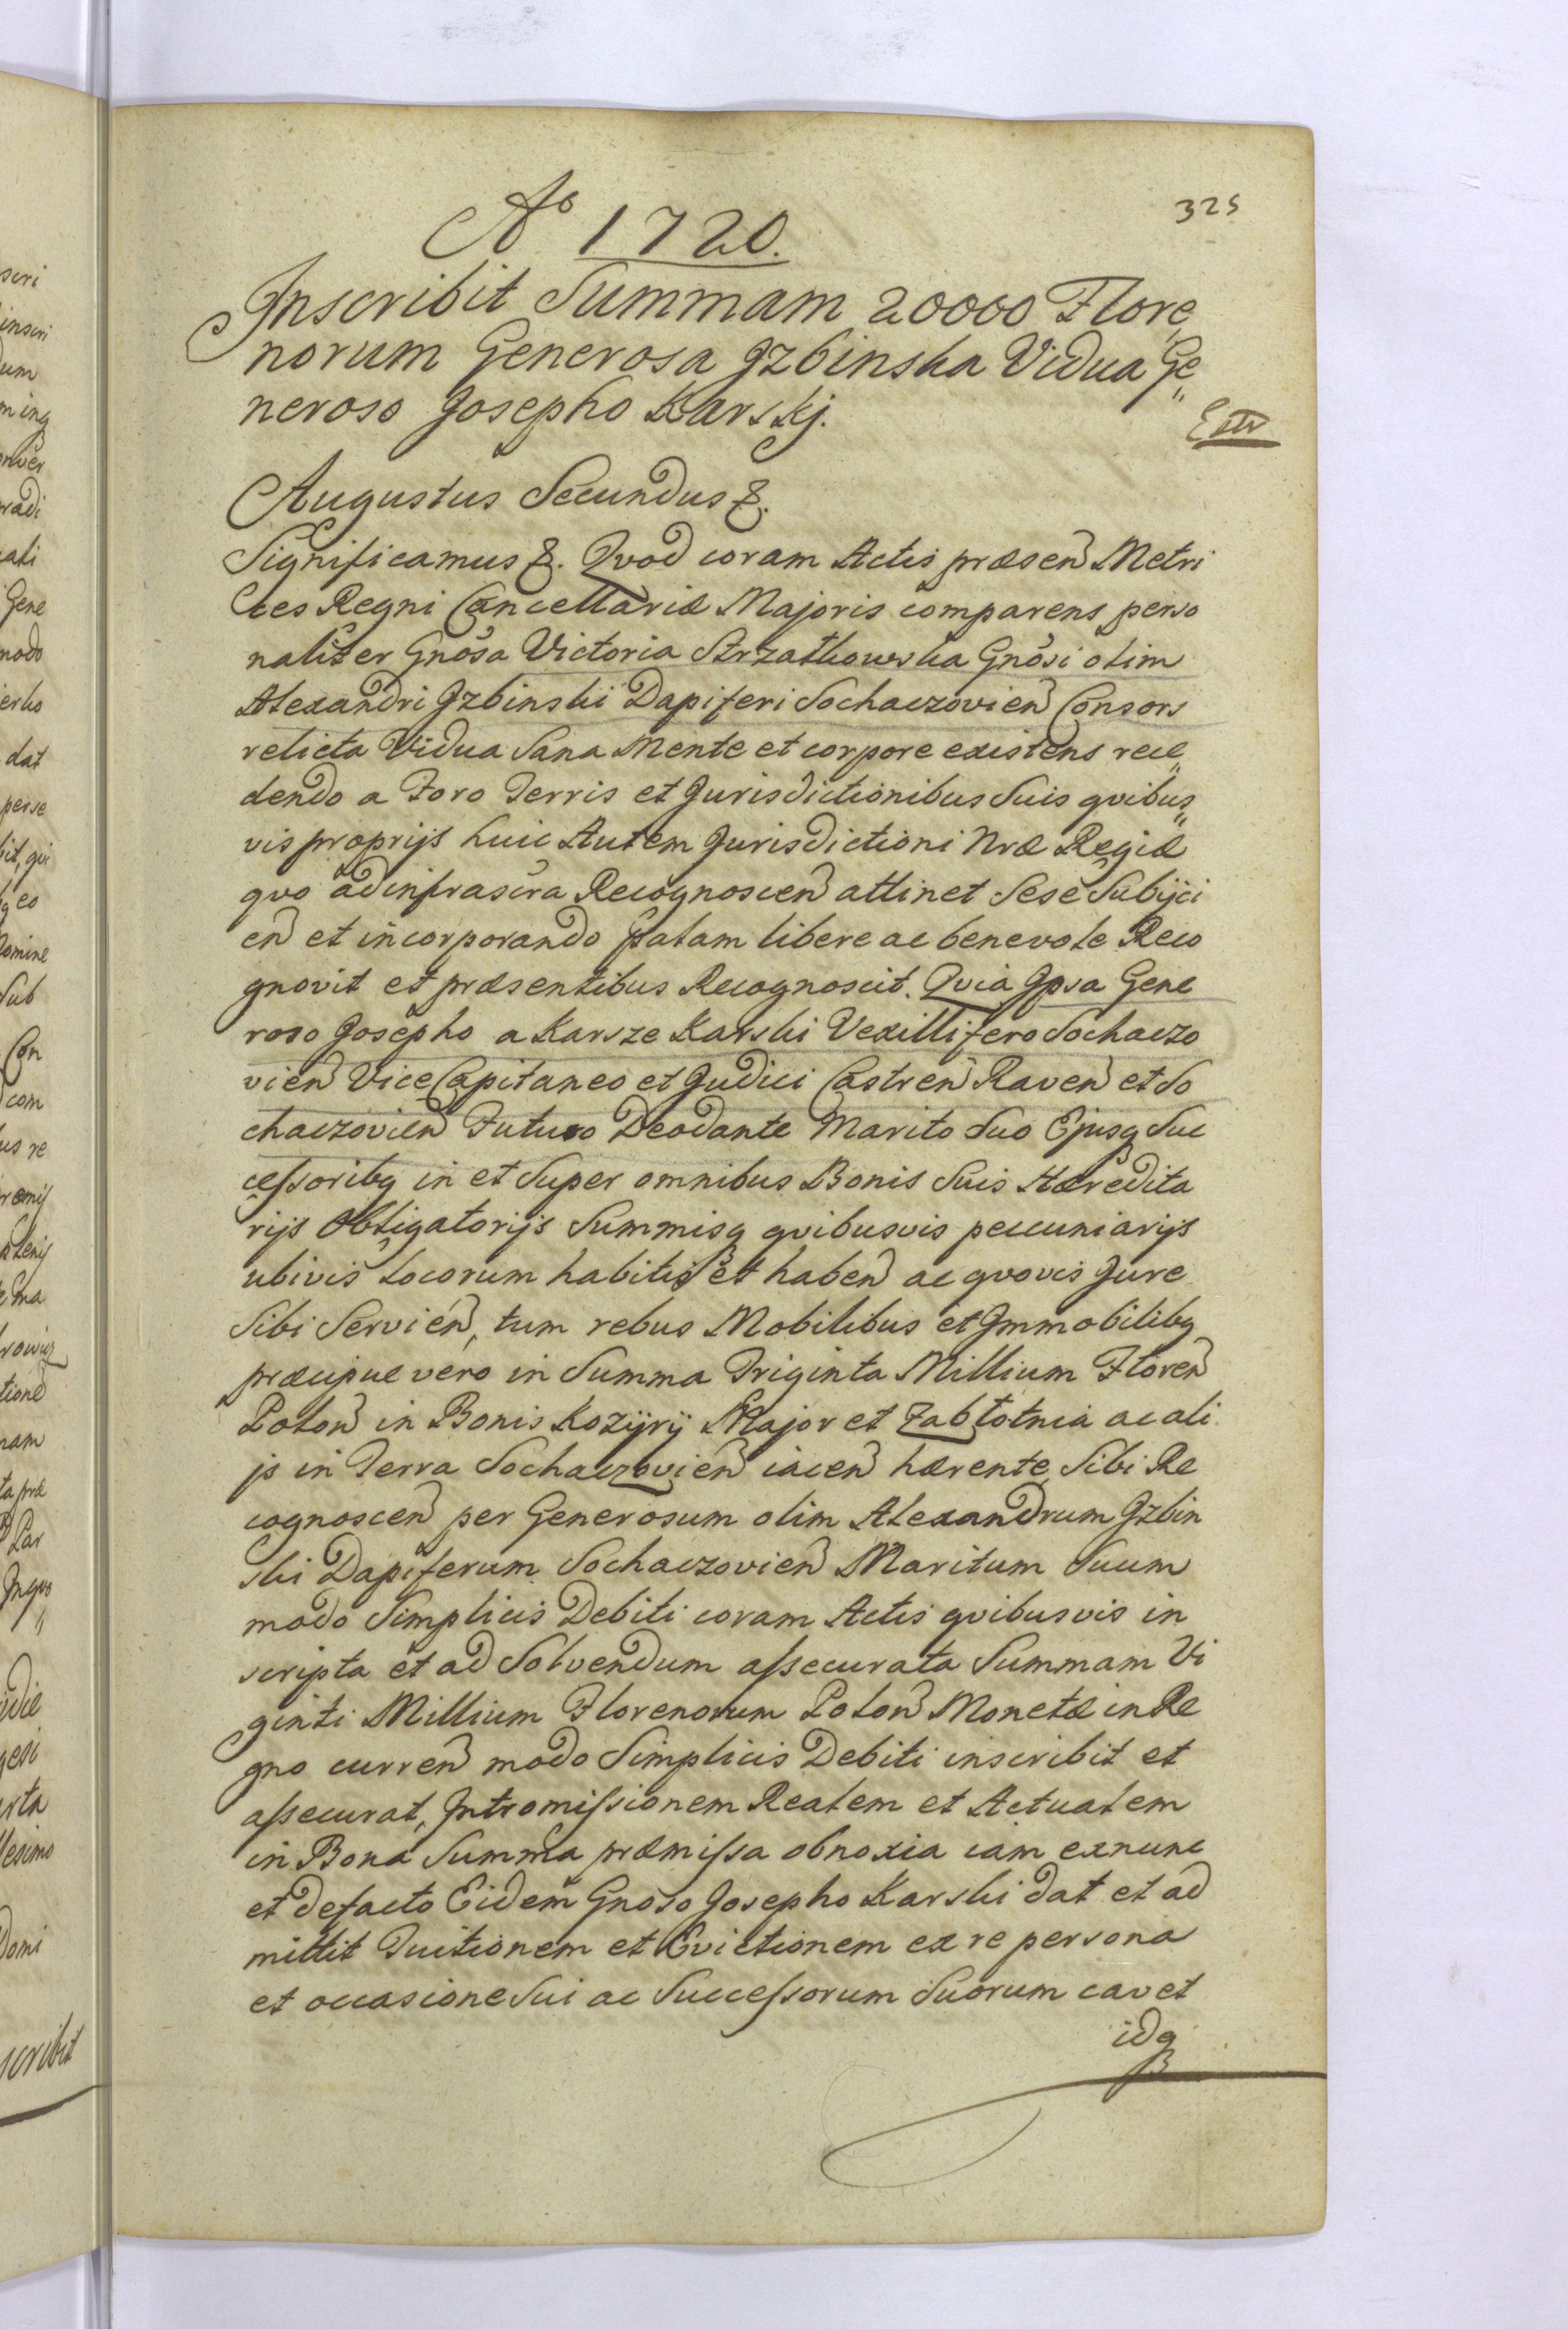 325
Aº 1720.
Inscribit Summam 20000 Flore„
norum Generosa Izbinska Vidua Ge„
neroso Josepho Karskj.
Augustus Secundus &.
Significamus &. Qvod coram Actis præsen Metri
ces Regni Cancellariæ Majoris comparens perso
naliter Gnosa Victoria Strzałkowska Gnosi olim
Alexandri Izbinski Dapiferi Sochaczovien Consors
relicta Vidua Sana Mente et corpore existens rece„
dendo a Foro Terris et Jurisdictionibus Suis qvibus„
vis proprijs huic Autem Jurisdictioni Nræ Regiæ
qvo ad infrascra Recognoscen attinet Sese Subijci
en et incorporando palam libere ac benevole Reco
gnovit et præsentibus Recognoscit. Qvia Ipsa Gene
roso Josepho a Karsze Karski Vexillifero Sochaczo
vien Vice Capitaneo et Judici Castren Raven et So
chaczovien Futuro Deodante Marito Suo Ejusq Suc
cessoribq in et Super omnibus Bonis Suis Hæredita
rijs Obligatorijs Summisq qvibusvis peccuniarijs
ubivis Locorum habitis et haben ac qvovis Jure
Sibi Servien, tum rebus Mobilibus et Immobilibq
præcipue vero in Summa Triginta Millium Floren
Polon in Bonis Kozijrij Major et Zabłotnia ac ali
js in Terra Sochaczovien iacen hærente, Sibi Re
cognoscen per Generosum olim Alexandrum Izbin
ski Dapiferum Sochaczovien Maritum Suum
modo Simplicis Debiti coram Actis qvibusvis in
scripta et ad Solvendum assecurata Summam Vi
ginti Millium Florenorum Polon Monetæ in Re
gno curren modo Simplicis Debiti inscribit et
assecurat, Intromissionem Realem et Actualem
in Bona Summa præmissa obnoxia iam exnunc
et defacto Eidem Gnoso Josepho Karski dat et ad
mittit Tuitionem et Evictionem ex re persona
et occasione Sui ac Successorum Suorum cavet
idq